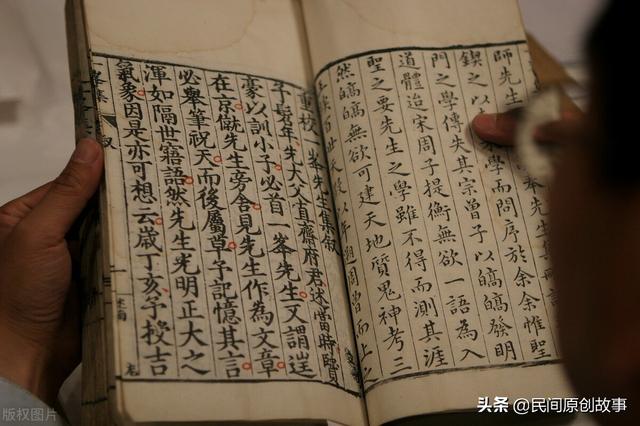 師先生
鍥之以 學而問序於余余惟聖
門之學傳失其宗曾子以皜皜發明
道體迨宋周子提衡無欲一語為入
聖之要先生之學雖不得而測其涯
然皜皜無欲可建天地質鬼神考三
重校 峯先生集敘
予髫年先大父直齋府君述當時賢
豪以訓小子必首一峯先生又謂逞
在京僦先生旁舍見先生作為文章
必舉筆祝天而後屬 予記憶其言
渾如隔世寤語然先生光明正大之
氣象因是亦可想云歲丁亥予授吉
版权图片
头条 @民间原创故事